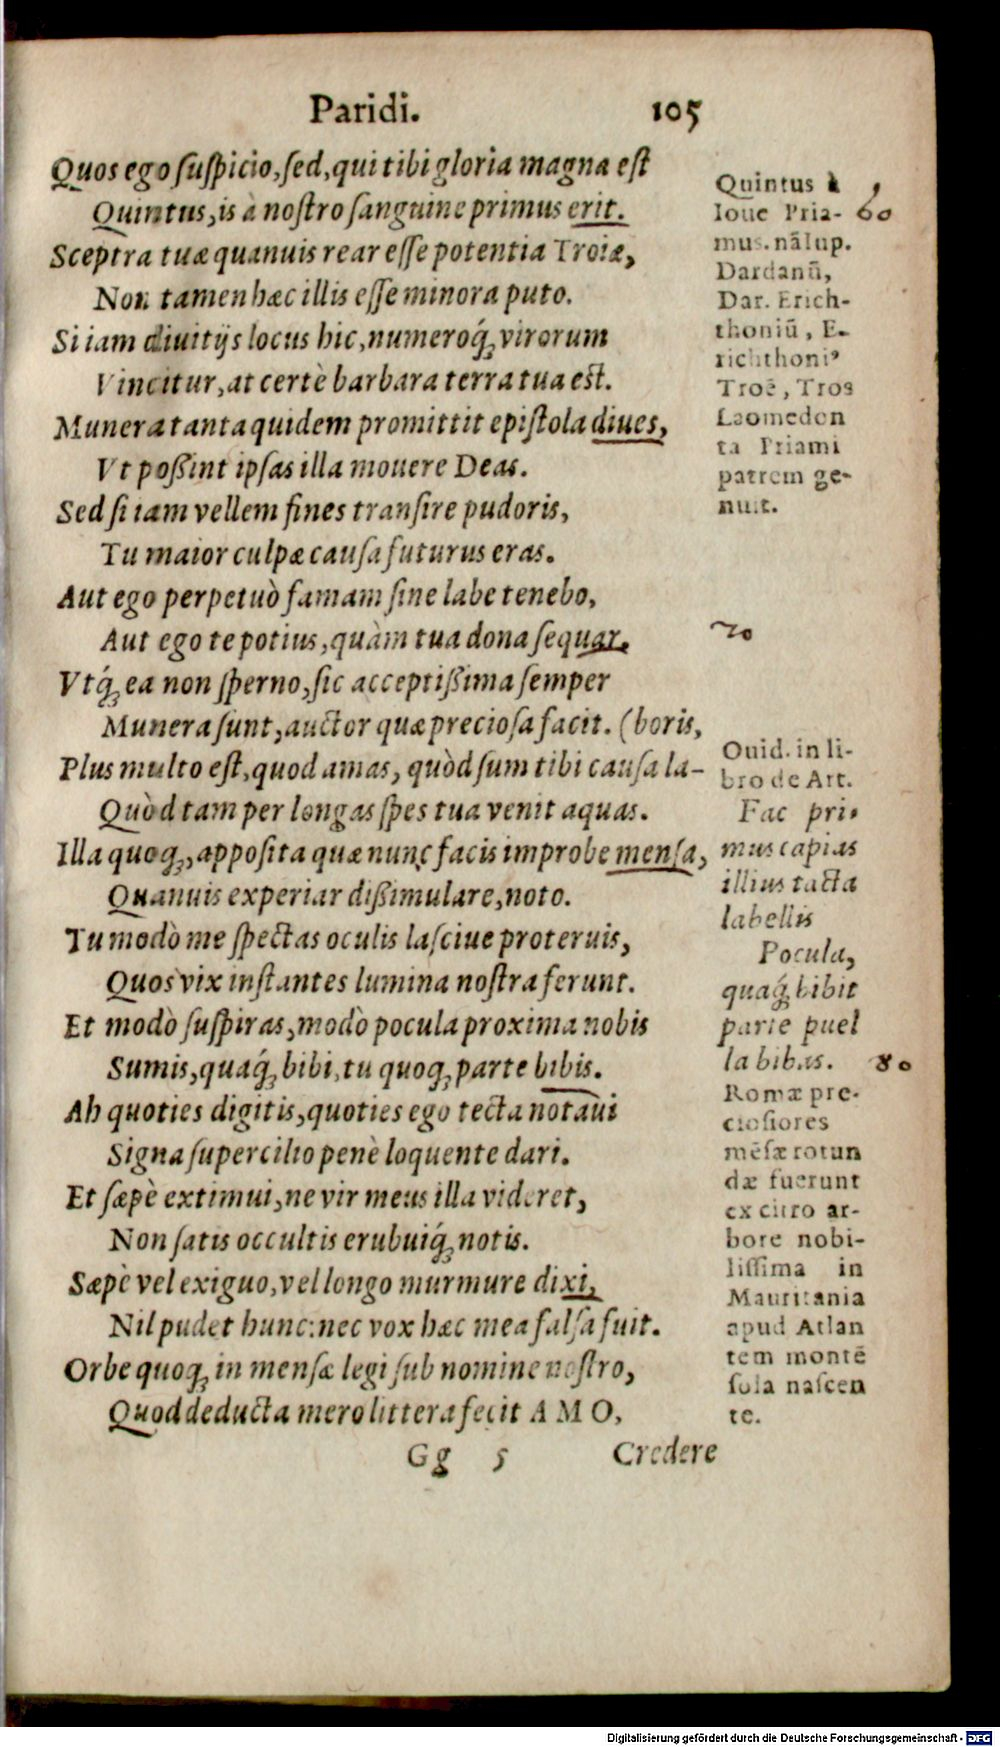 Paridi. 105
Quos ego ſuſpicio, ſed, qui tibi gloria magna eſt
Quintus, is à noſtro ſanguine primus erit.
Sceptra tuæ quanuis rear eſſe potentia Troiæ,
Non tamen hæc illis eſſe minora puto.
Si iam diuitijs locus hic, numeroq́; virorum
Vincitur, at certè barbara terra tua est.
Munera tanta quidem promittit epiſtola diues,
Vt poßint ipſas illa mouere Deas.
Sed ſi iam vellem fines tranſire pudoris,
Tu maior culpæ cauſa futurus eras.
Aut ego perpetuò famam ſine labe tenebo,
Aut ego te potius, quàm tua dona ſequar.
Vtq́; ea non ſperno, ſic acceptißima ſemper
Munera ſunt, auctor quæ precioſa facit. (boris,
Plus multo eſt, quod amas, quòd ſum tibi cauſa la-
Quòd tam per longas ſpes tua venit aquas.
Illa quoq;, appoſita quæ nunc facis improbe menſa,
Quanuis experiar dißimulare, noto.
Tu modò me ſpectas oculis laſciue proteruis,
Quos vix inſtantes lumina noſtra ferunt.
Et modò ſuſpiras, modò pocula proxima nobis
Sumis, quaq́; bibi, tu quoq; parte bibis.
Ah quoties digitis, quoties ego tecta notaui
Signa ſupercilio penè loquente dari.
Et ſæpè extimui, ne vir meus illa videret,
Non ſatis occultis erubuiq́; notis.
Sæpè vel exiguo, vel longo murmure dixi,
Nil pudet hunc: nec vox hæc mea falſa fuit.
Orbe quoq; in menſæ legi ſub nomine noſtro,
Quod deducta mero littera fecit AMO,
Gg 5 Credere
Quintus à
Ioue Pria- 60
mus. nā Iup.
Dardanū,
Dar. Erich-
thoniū, E-
richthoniꝰ
Troē, Tros
Laomedon
ta Priami
patrem ge-
nuit.
70
Ouid. in li-
bro de Art.
Fac pri-
mus capias
illius tacta
labellis
Pocula,
quaq́; bibit
parte puel
la bibas. 80
Romæ pre-
cioſiores
mēſæ rotun
dæ fuerunt
ex citro ar-
bore nobi-
liſſima in
Mauritania
apud Atlan
tem montē
ſola naſcen
te.
Digitalisierung gefördert durch die Deutsche Forschungsgemeinschaft - DFG